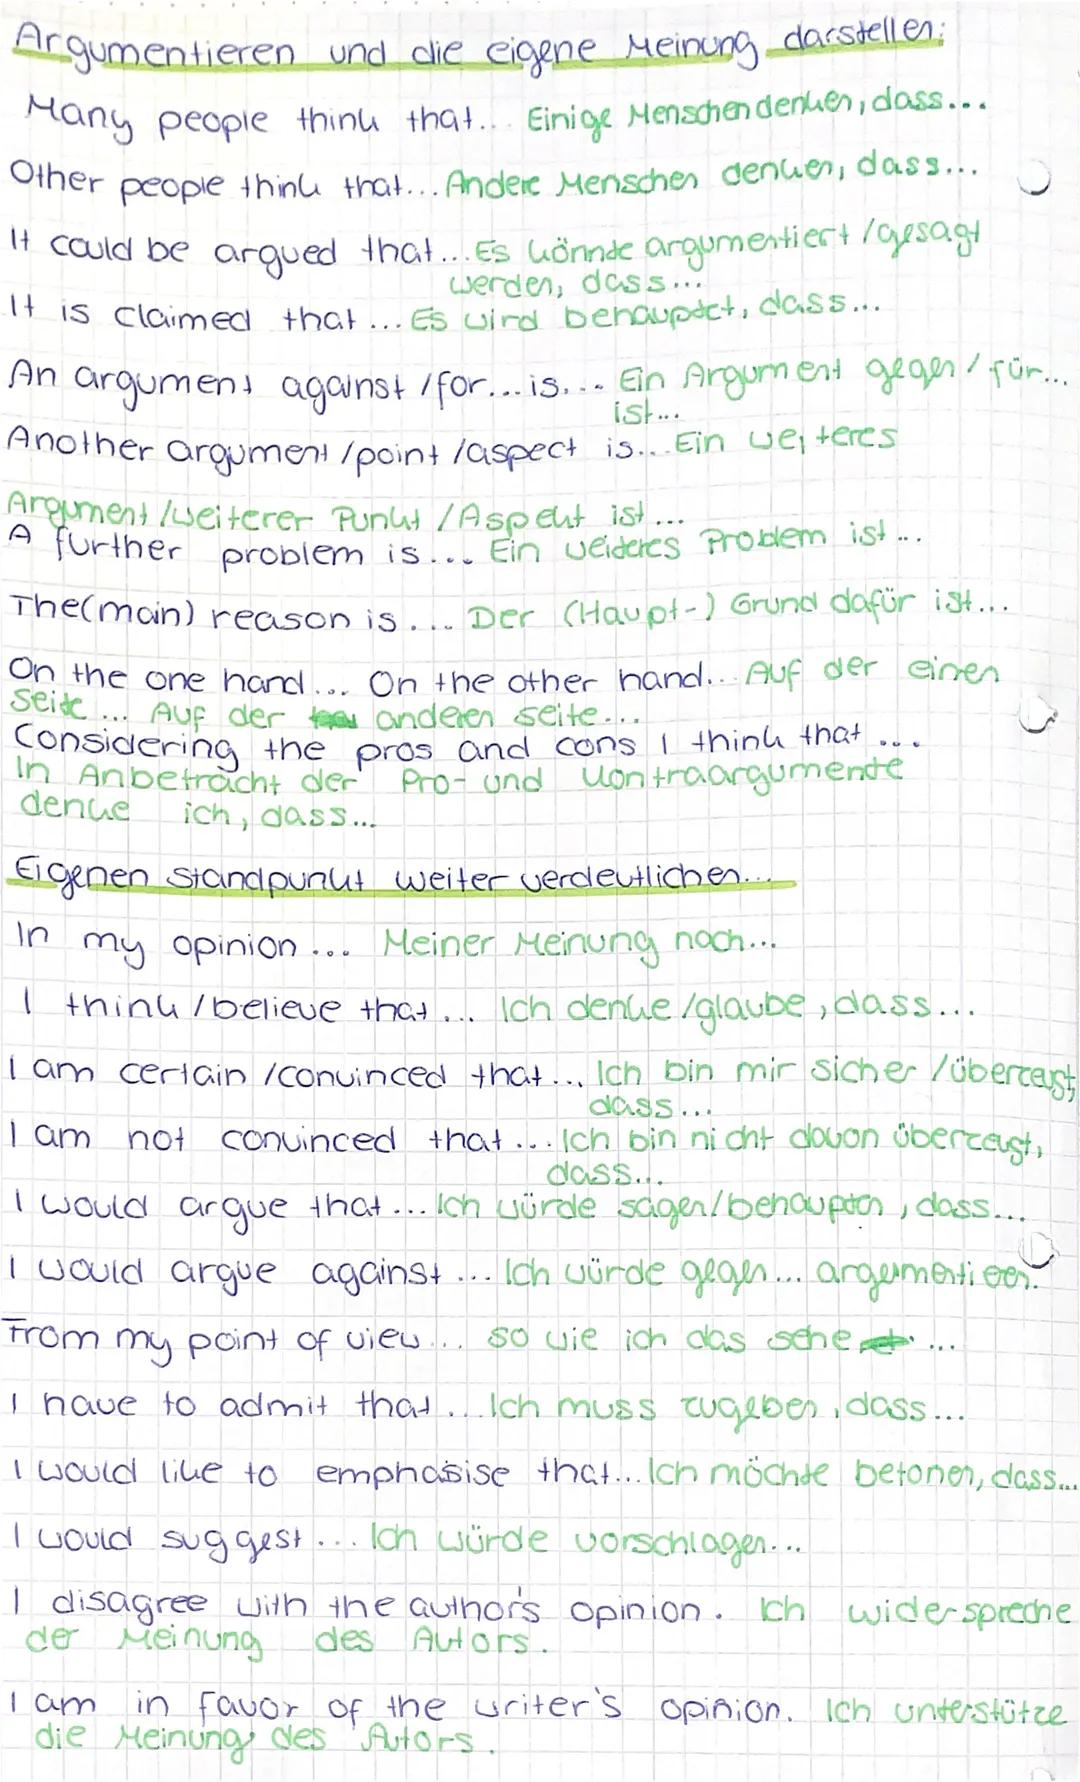 Argumentieren und die eigene Meinung darstellen:
Many people think that... Einige Menschen denken, dass...
Other people think that... Andere Menschen denken, dass...
It could be argued that... Es könnte argumentiert/gesagt
werden, dass...
It is claimed that... Es wird behauptet, dass...
An argument against/for... is... Ein Argument gegen/für...
ist...
Another argument/point/aspect is... Ein weiteres
Argument/weiterer Punkt/Aspekt ist...
A further problem is... Ein weiteres Problem ist...
The (main) reason is... Der (Haupt-) Grund dafür ist...
On the one hand... On the other hand... Auf der einen
Seite... Auf der anderen Seite...
Considering the pros and cons I think that...
In Anbetracht der Pro- und Kontraargumente
denke ich, dass...
Eigenen Standpunkt weiter verdeutlichen...
In my opinion... Meiner Meinung nach...
I think/believe that... Ich denke/glaube, dass...
I am certain/convinced that... Ich bin mir sicher/überzeugt,
dass...
I am not convinced that... Ich bin nicht davon überzeugt,
dass...
I would argue that... Ich würde sagen/behaupten, dass...
I would argue against... Ich würde gegen... argumentieren.
From my point of view... so wie ich das sehe...
I have to admit that... Ich muss zugeben, dass...
I would like to emphasise that... Ich möchte betonen, dass...
I would suggest... Ich würde vorschlagen...
I disagree with the author's opinion. Ich widerspreche
der Meinung des Autors.
I am in favor of the writer's opinion. Ich unterstütze
die Meinung des Autors.